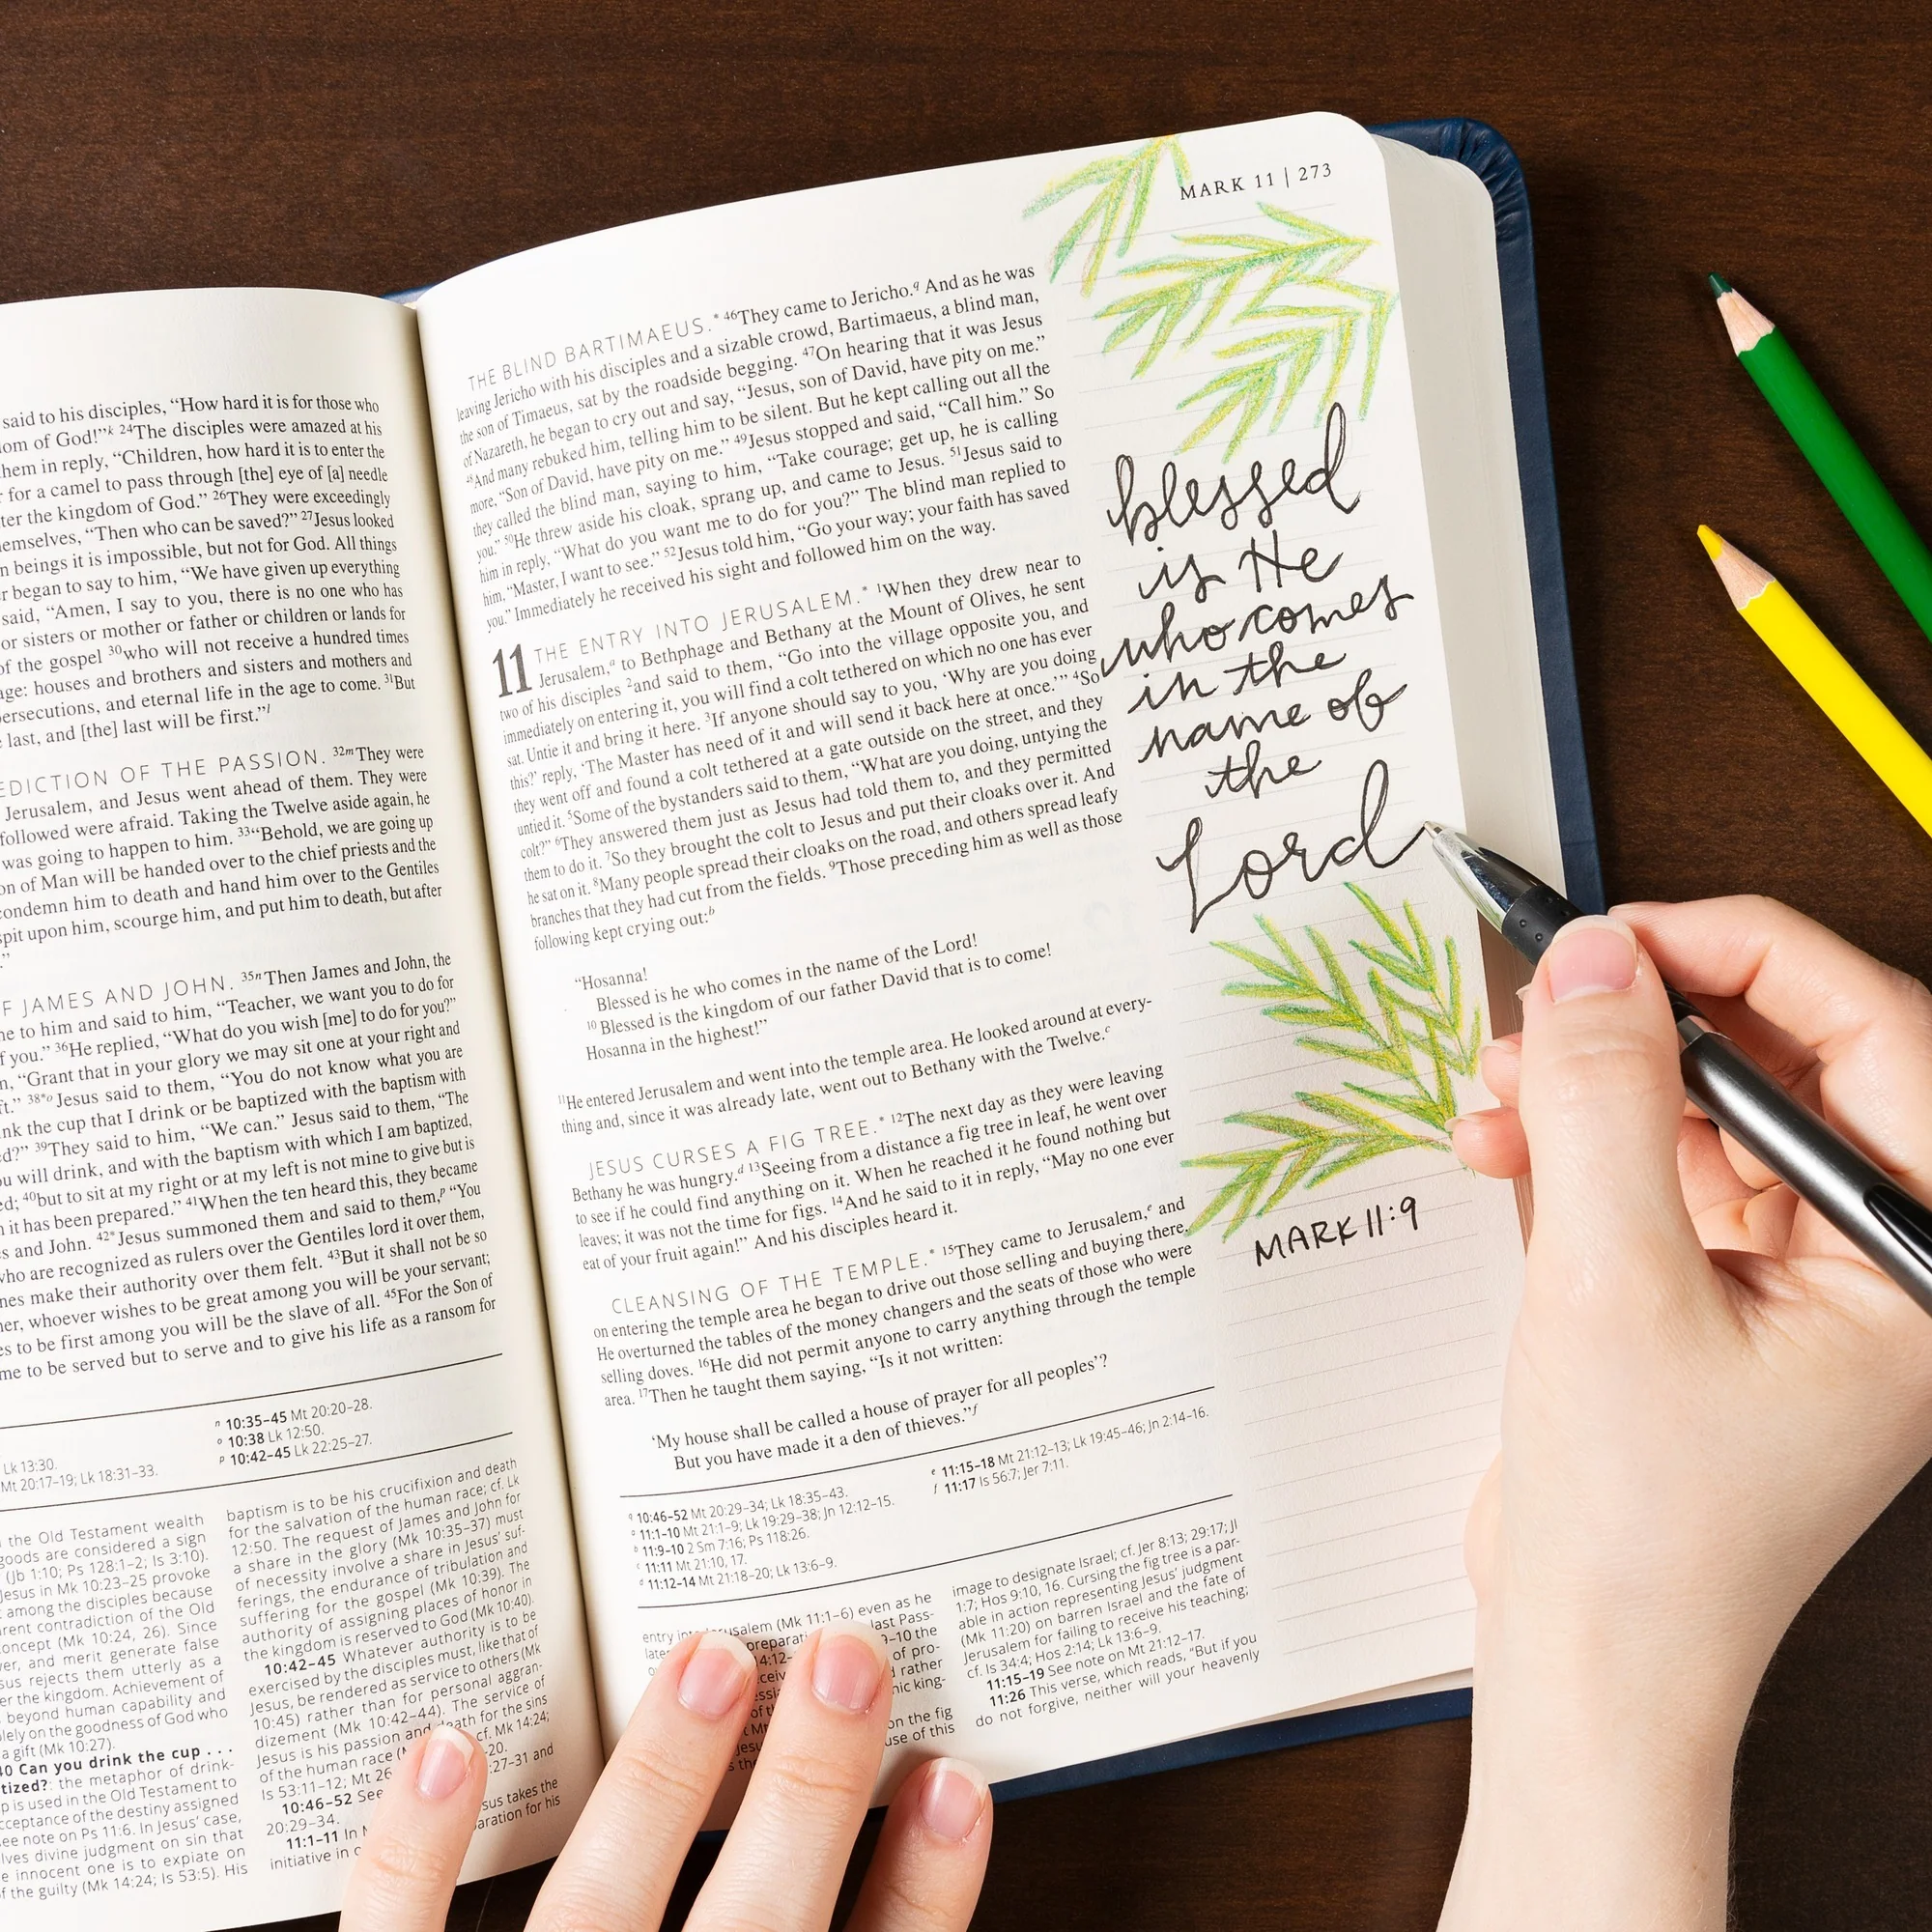 said to his disciples, “How hard it is for those who
dom of God!”ᵏ ²⁴The disciples were amazed at his
them in reply, “Children, how hard it is to enter the
for a camel to pass through [the] eye of [a] needle
ter the kingdom of God.” ²⁶They were exceedingly
emselves, “Then who can be saved?” ²⁷Jesus looked
n beings it is impossible, but not for God. All things
r began to say to him, “We have given up everything
said, “Amen, I say to you, there is no one who has
or sisters or mother or father or children or lands for
of the gospel ³⁰who will not receive a hundred times
age: houses and brothers and sisters and mothers and
persecutions, and eternal life in the age to come. ³¹But
last, and [the] last will be first.”ˡ
EDICTION OF THE PASSION. ³²ᵐThey were
Jerusalem, and Jesus went ahead of them. They were
followed were afraid. Taking the Twelve aside again, he
was going to happen to him. ³³“Behold, we are going up
on of Man will be handed over to the chief priests and the
condemn him to death and hand him over to the Gentiles
spit upon him, scourge him, and put him to death, but after
.”
F JAMES AND JOHN. ³⁵ⁿThen James and John, the
me to him and said to him, “Teacher, we want you to do for
f you.” ³⁶He replied, “What do you wish [me] to do for you?”
n, “Grant that in your glory we may sit one at your right and
ft.” ³⁸*ᵒJesus said to them, “You do not know what you are
nk the cup that I drink or be baptized with the baptism with
d?” ³⁹They said to him, “We can.” Jesus said to them, “The
u will drink, and with the baptism with which I am baptized,
ed; ⁴⁰but to sit at my right or at my left is not mine to give but is
m it has been prepared.” ⁴¹When the ten heard this, they became
s and John. ⁴²*Jesus summoned them and said to them,ᵖ “You
who are recognized as rulers over the Gentiles lord it over them,
nes make their authority over them felt. ⁴³But it shall not be so
her, whoever wishes to be great among you will be your servant;
es to be first among you will be the slave of all. ⁴⁵For the Son of
me to be served but to serve and to give his life as a ransom for
Lk 13:30.
Mt 20:17–19; Lk 18:31–33.
ⁿ 10:35–45 Mt 20:20–28.
ᵒ 10:38 Lk 12:50.
ᵖ 10:42–45 Lk 22:25–27.
the Old Testament wealth
goods are considered a sign
(Jb 1:10; Ps 128:1–2; Is 3:10).
Jesus in Mk 10:23–25 provoke
among the disciples because
arent contradiction of the Old
concept (Mk 10:24, 26). Since
wer, and merit generate false
sus rejects them utterly as a
er the kingdom. Achievement of
beyond human capability and
olely on the goodness of God who
a gift (Mk 10:27).
40 Can you drink the cup . . .
tized?: the metaphor of drink-
p is used in the Old Testament to
cceptance of the destiny assigned
see note on Ps 11:6. In Jesus’ case,
lves divine judgment on sin that
e innocent one is to expiate on
of the guilty (Mk 14:24; Is 53:5). His
baptism is to be his crucifixion and death
for the salvation of the human race; cf. Lk
12:50. The request of James and John for
a share in the glory (Mk 10:35–37) must
of necessity involve a share in Jesus’ suf-
ferings, the endurance of tribulation and
suffering for the gospel (Mk 10:39). The
authority of assigning places of honor in
the kingdom is reserved to God (Mk 10:40).
10:42–45 Whatever authority is to be
exercised by the disciples must, like that of
Jesus, be rendered as service to others (Mk
10:45) rather than for personal aggran-
dizement (Mk 10:42–44). The service of
Jesus is his passion and death for the sins
of the human race cf. Mk 14:24;
Is 53:11–12; Mt 26 –20.
10:46–52 See :27–31 and
20:29–34.
11:1–11 In sus takes the
initiative in paration for his
MARK 11 | 273
THE BLIND BARTIMAEUS.* ⁴⁶They came to Jericho.q And as he was
leaving Jericho with his disciples and a sizable crowd, Bartimaeus, a blind man,
the son of Timaeus, sat by the roadside begging. ⁴⁷On hearing that it was Jesus
of Nazareth, he began to cry out and say, “Jesus, son of David, have pity on me.”
⁴⁸And many rebuked him, telling him to be silent. But he kept calling out all the
more, “Son of David, have pity on me.” ⁴⁹Jesus stopped and said, “Call him.” So
they called the blind man, saying to him, “Take courage; get up, he is calling
you.” ⁵⁰He threw aside his cloak, sprang up, and came to Jesus. ⁵¹Jesus said to
him in reply, “What do you want me to do for you?” The blind man replied to
him, “Master, I want to see.” ⁵²Jesus told him, “Go your way; your faith has saved
you.” Immediately he received his sight and followed him on the way.
11 THE ENTRY INTO JERUSALEM.* ¹When they drew near to
Jerusalem,ᵃ to Bethphage and Bethany at the Mount of Olives, he sent
two of his disciples ²and said to them, “Go into the village opposite you, and
immediately on entering it, you will find a colt tethered on which no one has ever
sat. Untie it and bring it here. ³If anyone should say to you, ‘Why are you doing
this?’ reply, ‘The Master has need of it and will send it back here at once.’” ⁴So
they went off and found a colt tethered at a gate outside on the street, and they
untied it. ⁵Some of the bystanders said to them, “What are you doing, untying the
colt?” ⁶They answered them just as Jesus had told them to, and they permitted
them to do it. ⁷So they brought the colt to Jesus and put their cloaks over it. And
he sat on it. ⁸Many people spread their cloaks on the road, and others spread leafy
branches that they had cut from the fields. ⁹Those preceding him as well as those
following kept crying out:ᵇ
“Hosanna!
Blessed is he who comes in the name of the Lord!
¹⁰ Blessed is the kingdom of our father David that is to come!
Hosanna in the highest!”
¹¹He entered Jerusalem and went into the temple area. He looked around at every-
thing and, since it was already late, went out to Bethany with the Twelve.ᶜ
JESUS CURSES A FIG TREE.* ¹²The next day as they were leaving
Bethany he was hungry.ᵈ ¹³Seeing from a distance a fig tree in leaf, he went over
to see if he could find anything on it. When he reached it he found nothing but
leaves; it was not the time for figs. ¹⁴And he said to it in reply, “May no one ever
eat of your fruit again!” And his disciples heard it.
CLEANSING OF THE TEMPLE.* ¹⁵They came to Jerusalem,ᵉ and
on entering the temple area he began to drive out those selling and buying there.
He overturned the tables of the money changers and the seats of those who were
selling doves. ¹⁶He did not permit anyone to carry anything through the temple
area. ¹⁷Then he taught them saying, “Is it not written:
‘My house shall be called a house of prayer for all peoples’?
But you have made it a den of thieves.”ᶠ
q 10:46–52 Mt 20:29–34; Lk 18:35–43.
ᵃ 11:1–10 Mt 21:1–9; Lk 19:29–38; Jn 12:12–15.
ᵇ 11:9–10 2 Sm 7:16; Ps 118:26.
ᶜ 11:11 Mt 21:10, 17.
ᵈ 11:12–14 Mt 21:18–20; Lk 13:6–9.
ᵉ 11:15–18 Mt 21:12–13; Lk 19:45–46; Jn 2:14–16.
ᶠ 11:17 Is 56:7; Jer 7:11.
entry into Jerusalem (Mk 11:1–6) even as he
late preparati last Pass-
14:12– 9–10 the
of pro-
rather
nic king-
on the fig
use of this
image to designate Israel; cf. Jer 8:13; 29:17; Jl
1:7; Hos 9:10, 16. Cursing the fig tree is a par-
able in action representing Jesus’ judgment
(Mk 11:20) on barren Israel and the fate of
Jerusalem for failing to receive his teaching;
cf. Is 34:4; Hos 2:14; Lk 13:6–9.
11:15–19 See note on Mt 21:12–17.
11:26 This verse, which reads, “But if you
do not forgive, neither will your heavenly
blessed
is He
who comes
in the
name of
the
Lord
MARK 11:9